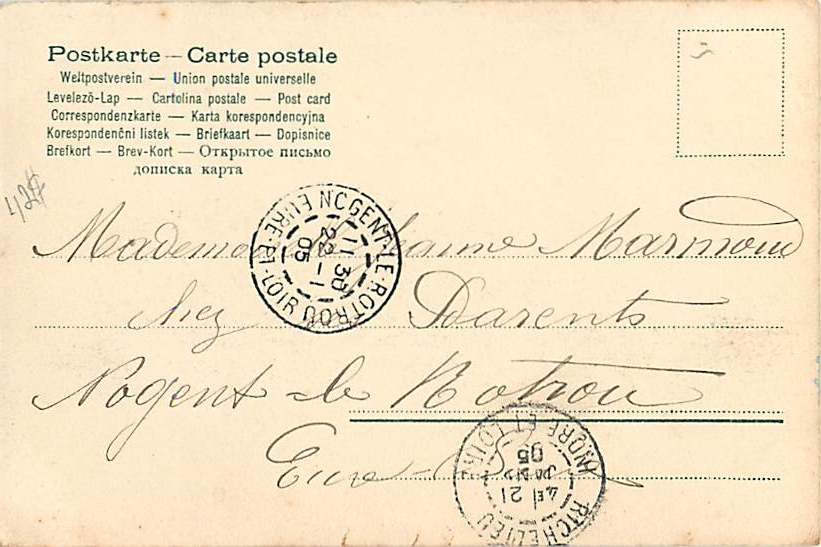 Postkarte — Carte postale
Weltpostverein — Union postale universelle
Levelező-Lap — Cartolina postale — Post card
Correspondenzkarte — Karta korespondencyjna
Korespondenční listek — Briefkaart — Dopisnice
Brefkort — Brev-Kort — Открытое письмо
дописка карта
42#
NOGENT-LE-ROTROU EURE-ET-LOIR
11 30
22 - 1
05
Marmoud
chez Parents
Nogent-le Rotrou
Eure
RICHELIEU INDRE ET LOIRE
4E 21
JANV
05